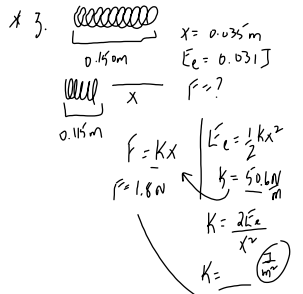 * 3.
0.150m
x = 0.035m
Ee = 0.031J
F = ?
x
0.115m
F = Kx
F = 1.8N
Ee = 1/2 Kx²
K = 50.6 N/m
K = 2Ee/x²
K = __ J/m²